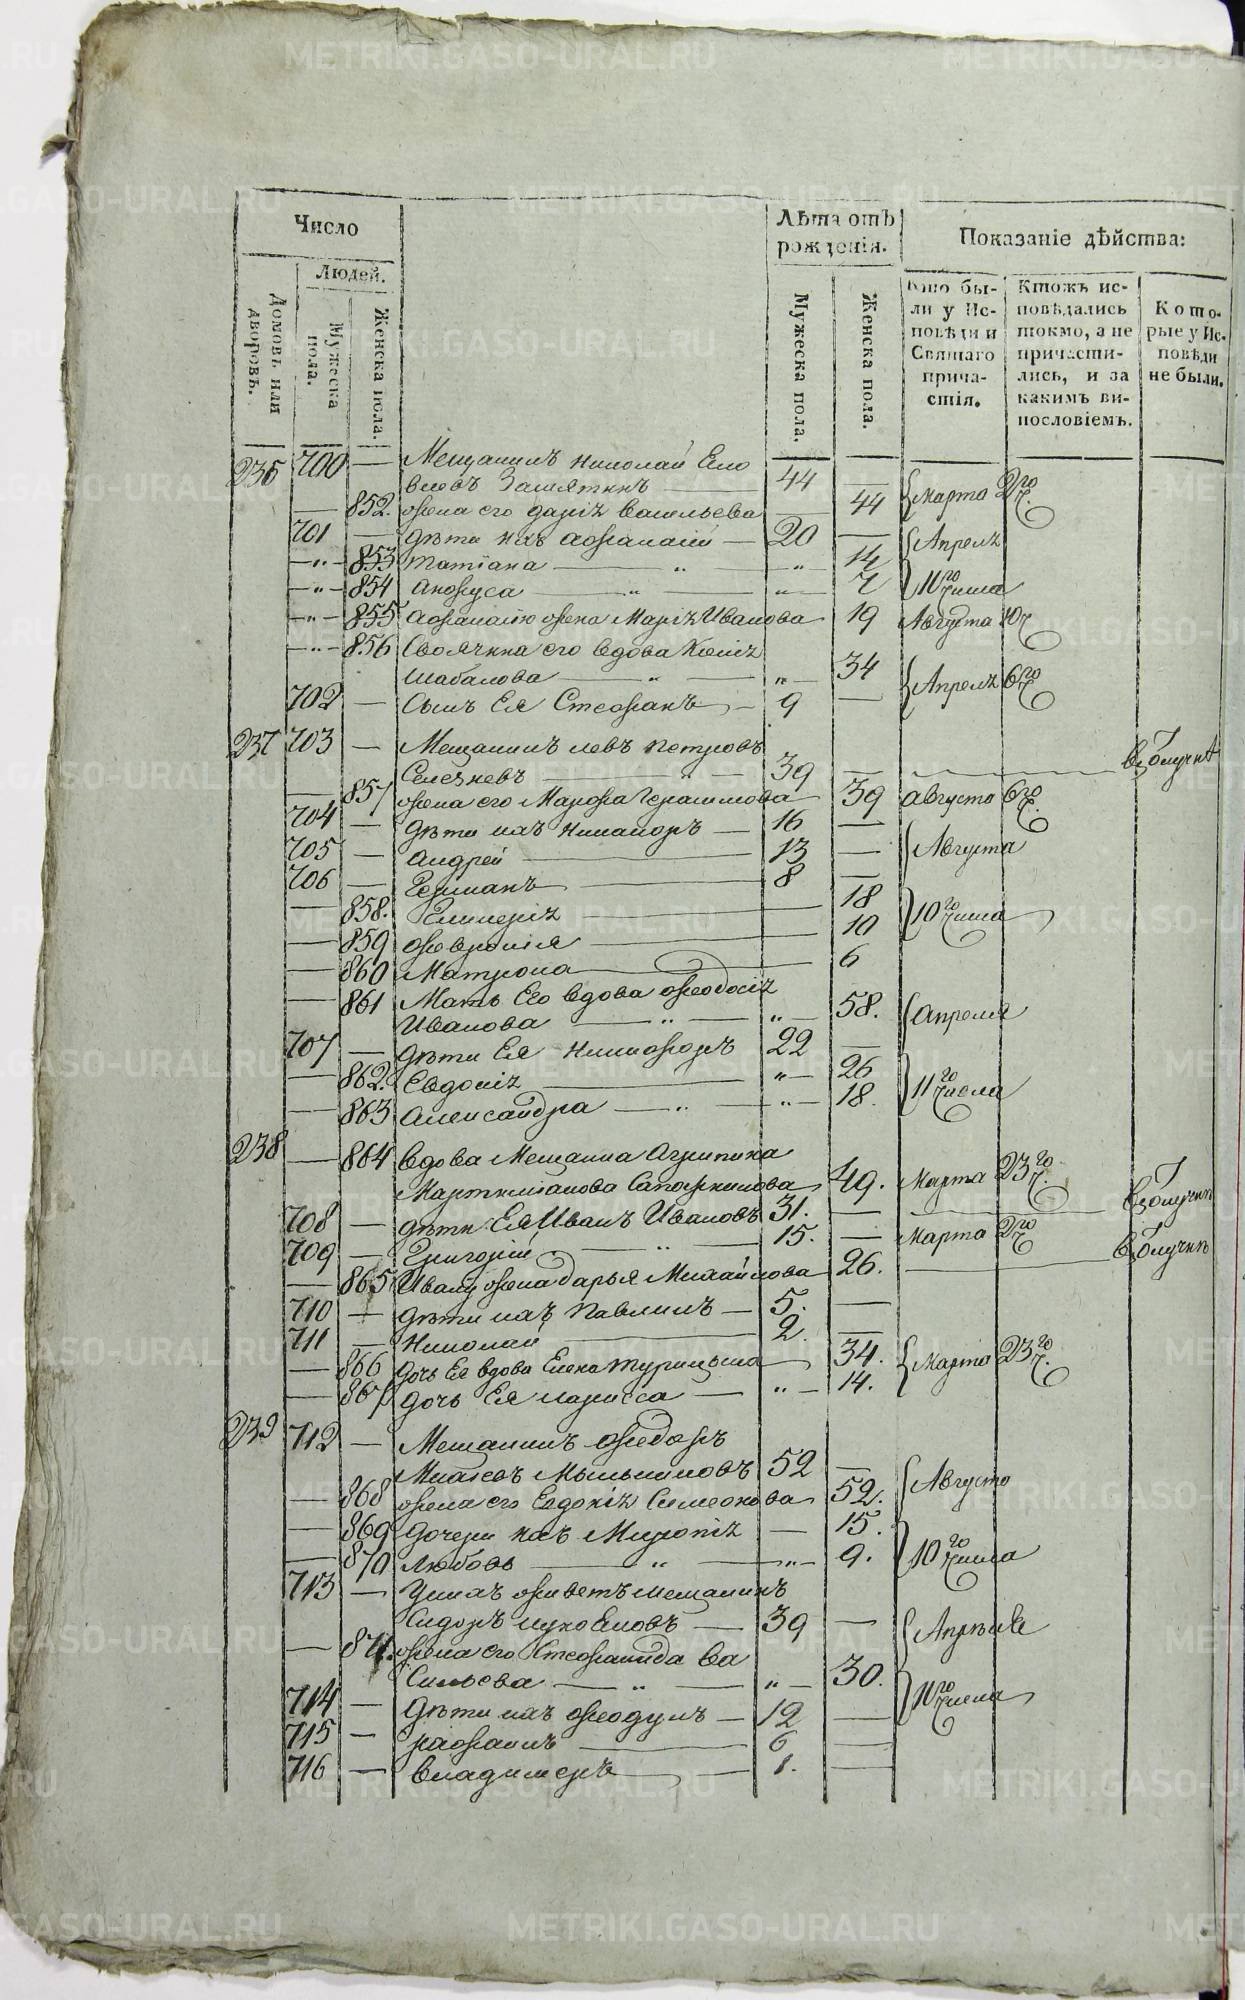 Число
Людей.
Домовъ или дворовъ.
Мужеска пола.
Женска пола.
Лѣта отъ рожденія.
Мужеска пола.
Женска пола.
Показаніе дѣйства:
Кто бы-
ли у Ис-
повѣди и
Святаго
прича-
стія.
Ктожъ ис-
повѣдались
токмо, а не
причасти-
лись, и за
какимъ ви-
нословіемъ.
Кото-
рые у Ис-
повѣди
не были.
236 700 — Мещанинъ Николай
Замяткинъ — 44 —
— 852. жена его Дарія Васильева — 44 Марта 2го ч.
701 — Дѣти ихъ Афанасій — 20 — Апреля
— " — 853 Татіана — " — " — 14
— " — 854 Анфуса — " — " — 7 11го числа
— " — 855 Афанасію жена Марія Иванова 19 Августа 10 ч
— " — 856 Своячина его вдова
Шабалова — " — " — 34 Апреля 6го ч
702 — Сынъ Ея Стефанъ — 9 —
237 703 — Мещанинъ Левъ Петровъ
Селезневъ — " — 39 — в отлучкѣ
— 857 жена его Марфа Герасимова 39 Августа 6го ч.
704 — Дѣти ихъ Никаноръ — 16 — Августа
705 — Андрей — 13 —
706 — Германъ — 8 —
— 858. Гликерія — 18 10го числа
— 859 Феврония — 10
— 860 Матрона — 6
— 861 Мать Его вдова Феодосія
Иванова — " — " — 58. Апреля
707 — Дѣти Ея Никифоръ 22 —
— 862. Евдокія — " — 26 11го числа
— 863 Александра — " — " — 18.
238 — 864 вдова Мещанка Агрипина
Мартиміанова Сапожникова 49. Марта 23го ч.
708 — Дѣти Ея Иванъ Ивановъ 31. — в отлучкѣ
709 — Григорій — " — 15. — Марта 2го ч
— 865 Ивану жена Дарья Михайлова 26. — в отлучкѣ
710 — Дѣти ихъ Павлинъ — 5. —
711 — Николай — 2. —
— 866 Дочь Ея вдова Елена Турицына 34. Марта 23го ч.
— 867 Дочь Ея Лариса — " — 14.
239 712 — Мещанинъ Федоръ
Мыльниковъ 52 — Августа
— 868 жена его Евдокія Симеонова 52.
— 869 Дочери ихъ Миропія — 15.
— 870 Любовь — " — " — 9. 10го числа
713 — У нихъ живетъ Мещанинъ
Сидоръ — 39 — Апреля
— 871. жена его Стефанида Ва
сильева — " — " — 30. 11го числа
714 — Дѣти ихъ Феодулъ — 12 —
715 — Рафаилъ — 6 —
716 — Владимеръ — 1. —